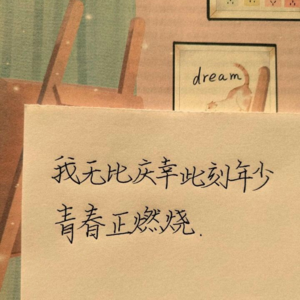 dream
我无比庆幸此刻年少
青春正燃烧.